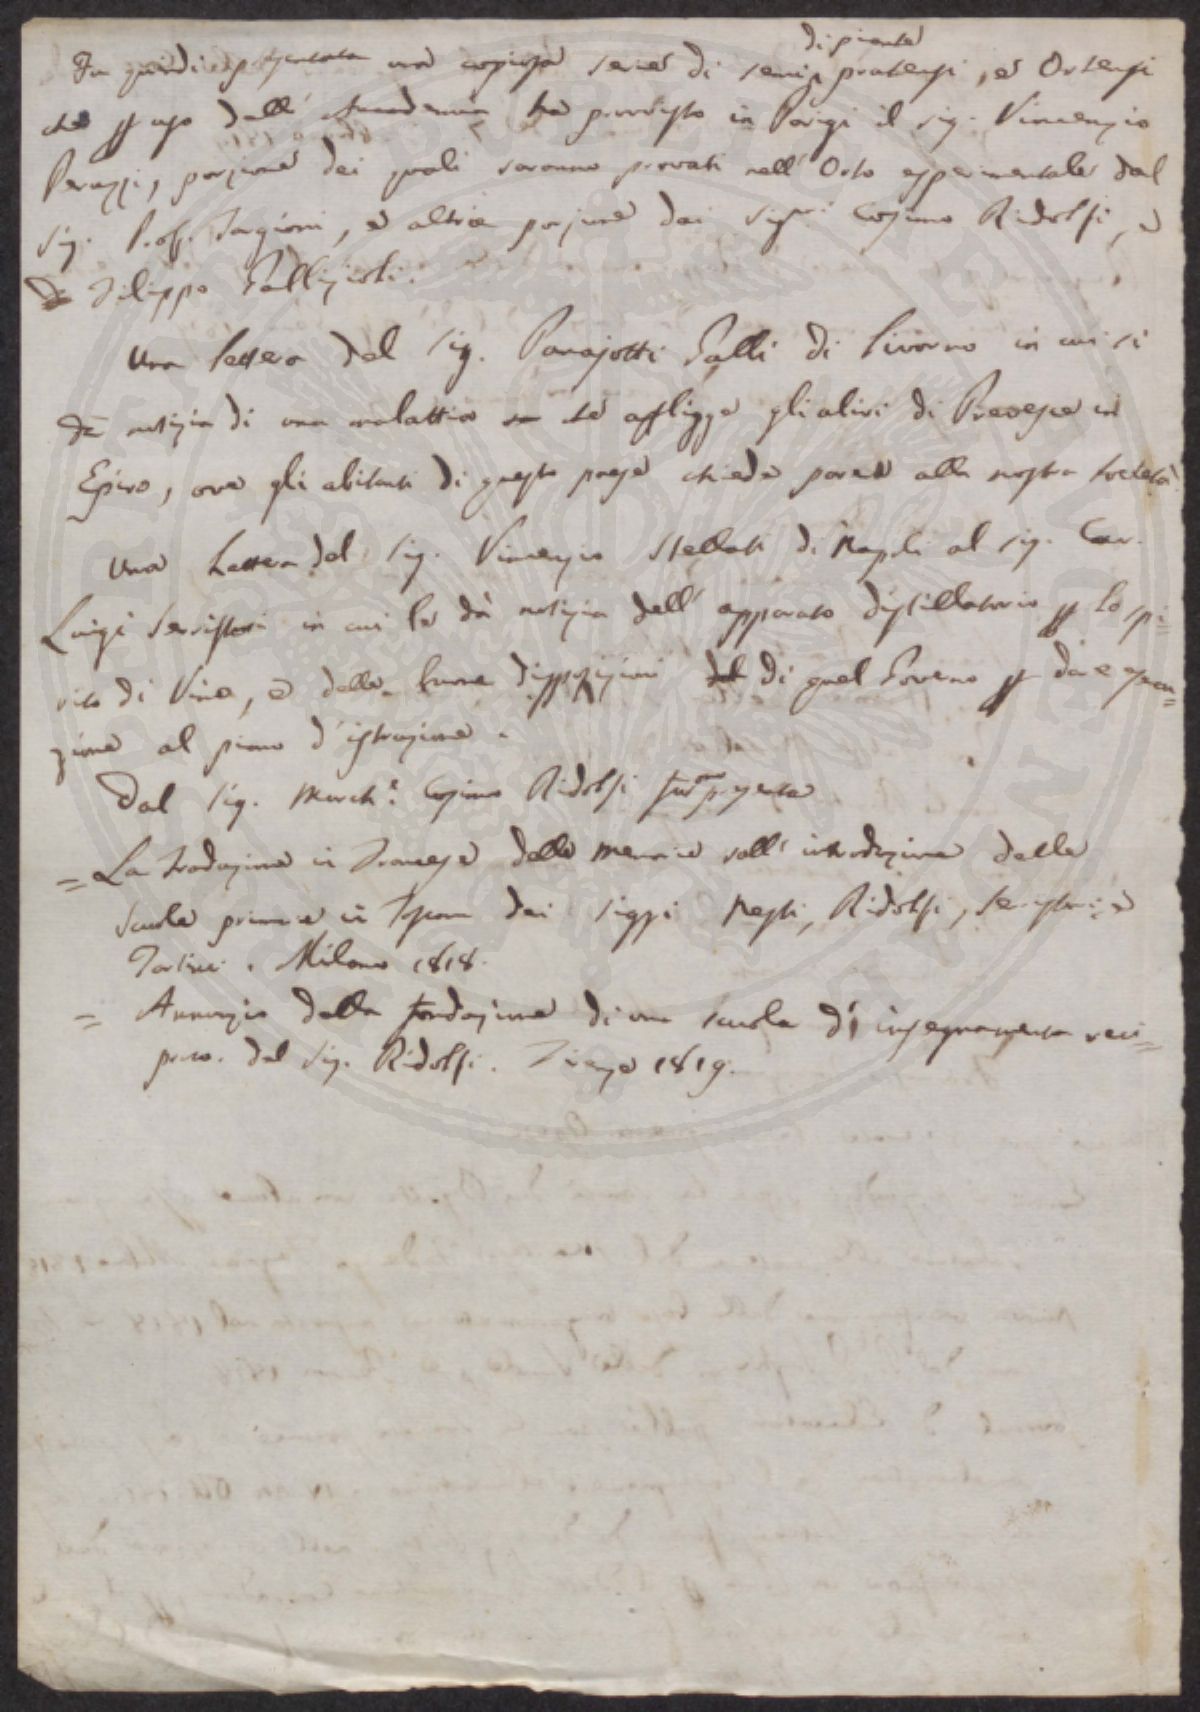 Fu quindi presentata una copiosa serie di semi di piante pratensi, e Ortensi
che p uso dell' Accademia ha provvisto in Parigi il sig. Vincenzio
Peruzzi, porzione dei quali saranno provati nell' Orto esperimentale dal
Sig. Prof. Targioni, e altra porzione dai Sigri Cosimo Ridolfi, e
Filippo Gallizioli.
Una lettera del Sig. Panajotti Palli di Livorno in cui si
dà notizia di una malattia che affligge gli alivi di Prevesa in
Epiro, ove gli abitanti di questo paese chiede parere alla nostra Società
Una Lettera del Sig. Vincenzio Stellati di Napoli al sig. Cav.
Luigi Serristori in cui le dà notizia dell' apparato distillatorio p lo spi=
rito di Vino, e delle buone disposizioni di quel Governo p dare espan=
zione al piano d'istruzione.
Dal Sig. March.e Cosimo Ridolfi furon presenta
= La traduzione in Francese delle memorie sull' introduzione delle
Scuole primarie in Toscana dei Siggi Nesti, Ridolfi, Serristori e
Tartini. Milano 1818.
= Annunzio della fondazione di una scuola d'insegnamento reci=
proco. del Sig. Ridolfi. Firenze 1819.